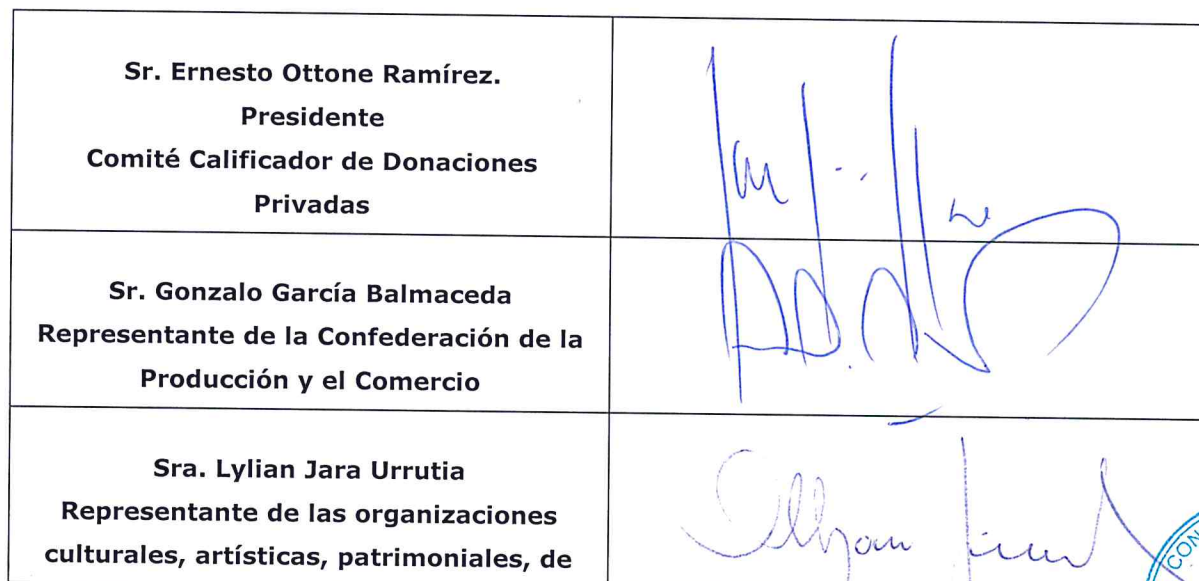 Sr. Ernesto Ottone Ramírez.
Presidente
Comité Calificador de Donaciones
Privadas
Sr. Gonzalo García Balmaceda
Representante de la Confederación de la
Producción y el Comercio
Sra. Lylian Jara Urrutia
Representante de las organizaciones
culturales, artísticas, patrimoniales, de
CON